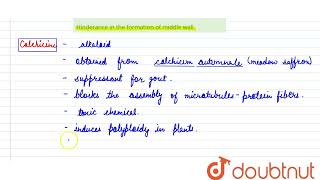 Hinderance in the formation of middle wall.
Calchicine - alkaloid
- obtained from calchicum autumnale (meadow saffron)
- suppressant for gout.
- blocks the assembly of microtubules - protein fibers.
- toxic chemical.
- induces polyploidy in plants.
doubtnut